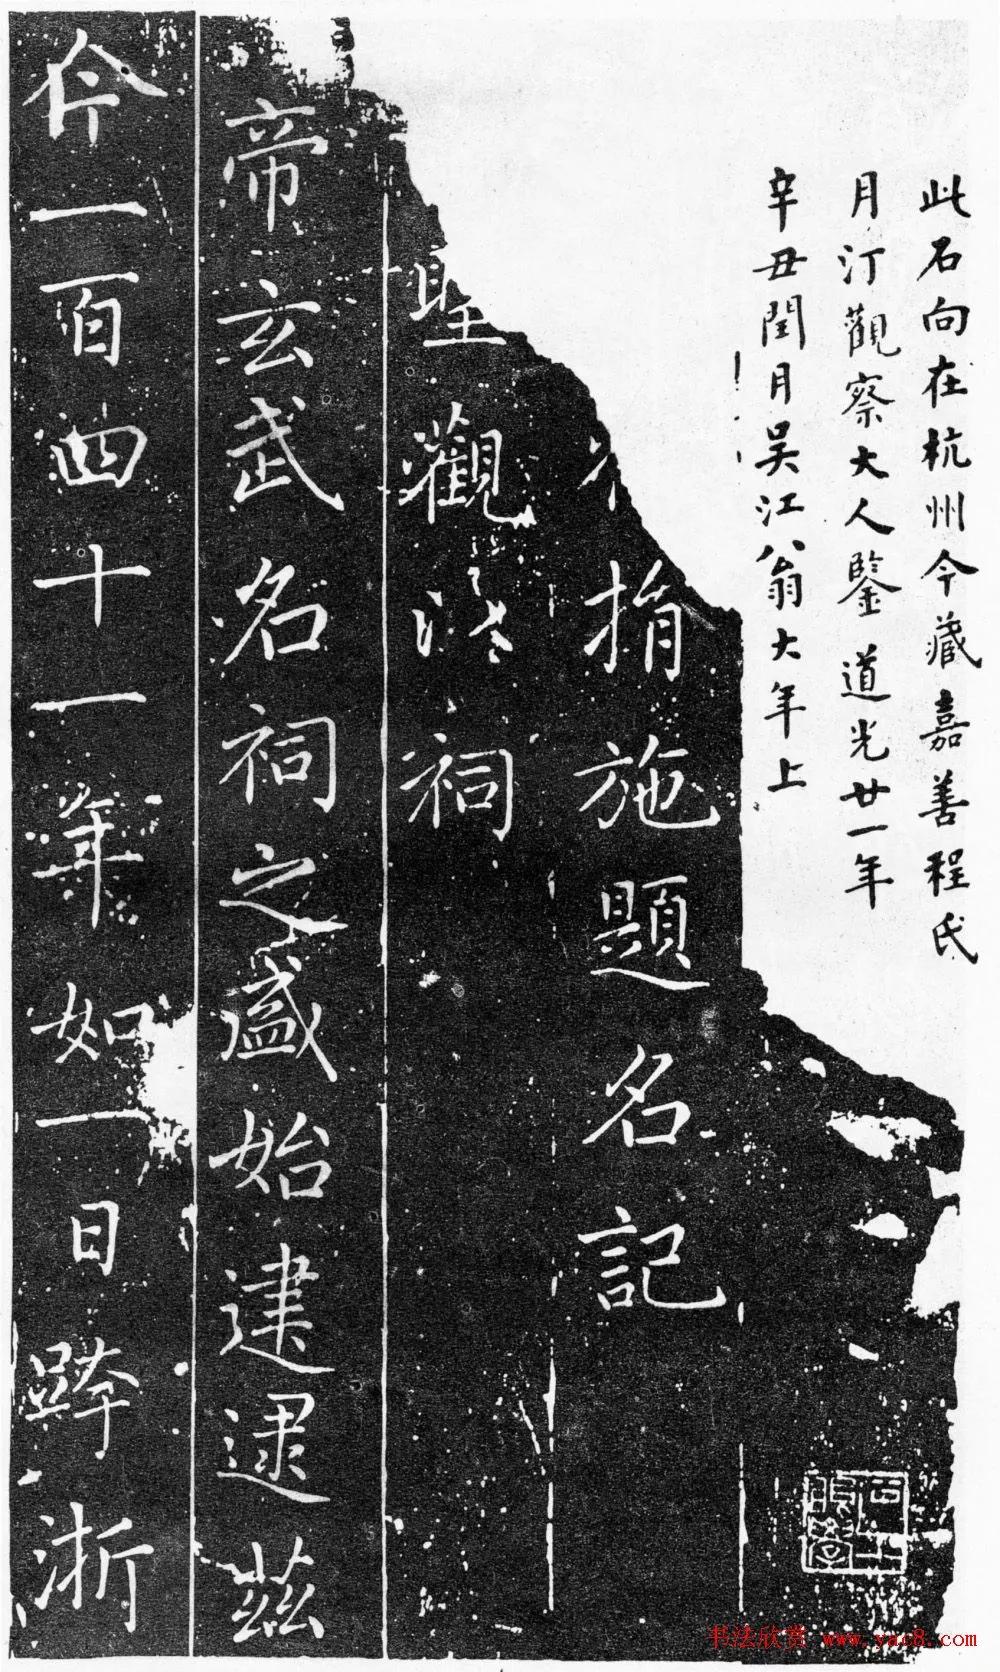 此石向在杭州今藏嘉善程氏
月汀觀察大人鑒道光廿一年
辛丑閏月吳江翁大年上
捐施題名記
聖觀 祠
帝玄武名祠之盛始建逮茲
仐一百四十一年如一日跨浙
书法欣赏 www.yac8.com